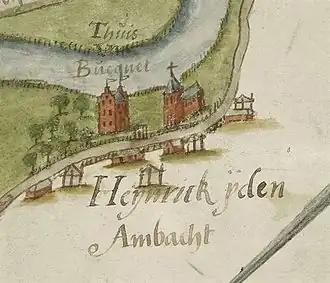 Thuis
Bucquet
Heÿnrick ÿden
Ambacht